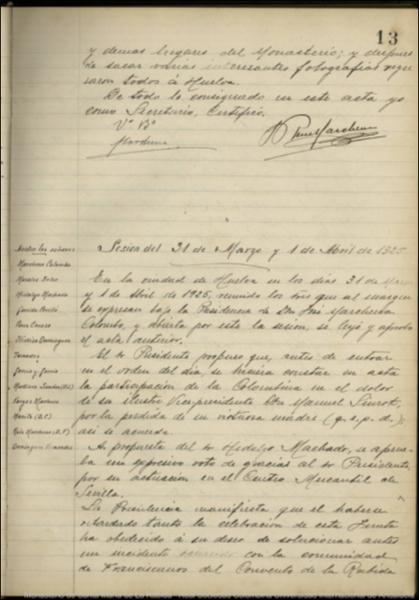 13
y demas lugares del Monasterio; y despues
de sacar varias interesantes fotografías regre
saron todos á Huelva.
De todo lo consignado en este acta yo
como Secretario, Certifico.
Vº Bº
Marchena
Sesion del 31 de Marzo y 1 de Abril de 1925
Asisten los señores
Marchena Colombo
Hidalgo Machado
Garcia y Garcia
Vargas Machuca
En la ciudad de Huelva en los dias 31 de Marzo
y 1 de Abril de 1925, reunido los Sres que al margen
se expresan bajo la Presidencia de Don José Marchena
Colombo, y abierta por este la sesion, se leyó y aprobó
el acta anterior.
El Sr Presidente propuso que, antes de entrar
en el orden del dia, se hiciera constar en acta
la participacion de la Colombina en el dolor
de su ilustre Vicepresidente Don Manuel Siurot,
por la perdida de su virtuosa madre (q. s. p. d.);
asi se acuerda.
A propuesta del Sr Hidalgo Machado, se aprue-
ba un expresivo voto de gracias al Sr Presidente,
por su actuacion en el Centro Mercantil de
Sevilla.
La Presidencia manifiesta que el haberse
retardado tanto la celebracion de esta Junta
ha obedecido á su deseo de solucionar antes
un incidente ocurrido con la comunidad
de Franciscanos del Convento de la Rabida